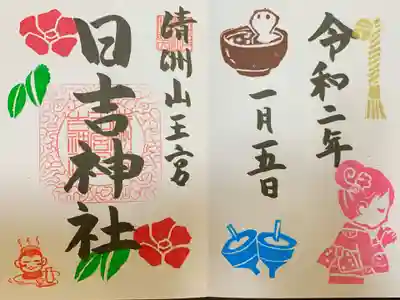 令和二年
一月五日
晴洲山王宮
日吉神社